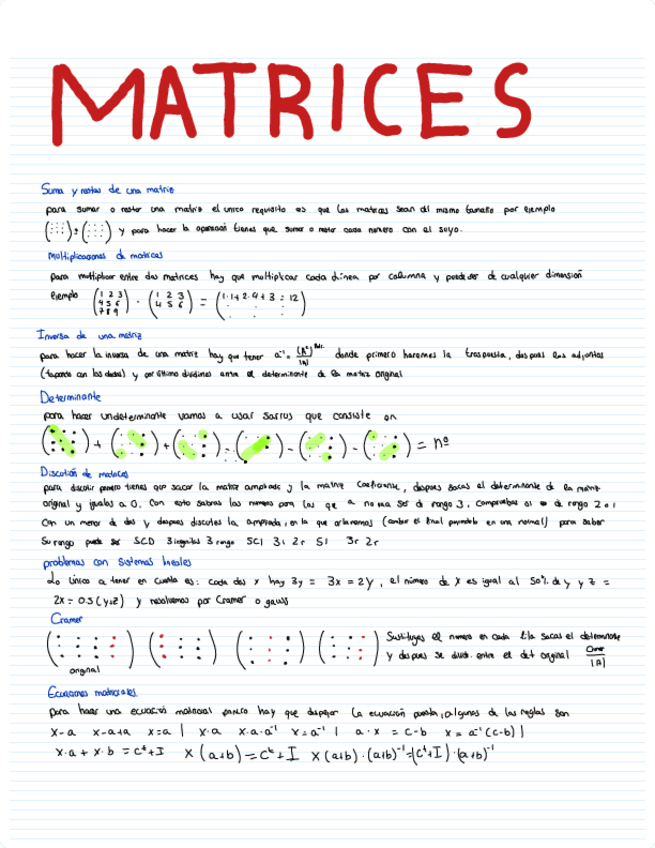 MATRICES
Suma y restas de una matriz
para sumar o restar una matriz el unico requisito es que las matrices sean dl mismo tamaño por ejemplo
( ) + ( ) y para hacer la operación tienes que sumar o restar cada numero con el suyo.
multiplicaciones de matrices
para multiplicar entre dos matrices hay que multiplicar cada linea por columna y puede ser de cualquier dimensión
Ejemplo (1 2 3 4 5 6 7 8 9) · (1 2 3 4 5 6) = (1·1+2·4+3 = 12)
Inversa de una matriz
para hacer la inversa de una matriz hay que tener a⁻¹ = donde primero haremos la traspuesta, despues los adjuntos
(tapando con los dedos) y por último dividimos entre el determinante de la matriz original
Determinante
para hacer un determinante vamos a usar sarrus que consiste en
( ) + ( ) + ( ) - ( ) - ( ) - ( ) = nº
Discusión de matrices
para discutir primero tienes que sacar la matriz ampliada y la matriz coeficiente, despues sacas el determinante de la matriz
original y igualas a 0. Con esto sabras los numeros para los que a no va ser de rango 3, compruebas si es de rango 2 o 1
Con un menor de dos y despues discutes la ampliada, en la que orlaremos (cambiar el final poniendolo en una normal) para saber
Su rango puede ser SCD 3 incognitas 3 rango SCI 3i 2r SI 3r 2r
problemas con sistemas lineales
Lo único a tener en cuenta es: cada dos x hay 3y = 3x = 2y, el número de x es igual al 50% de y y z =
2x = 0.5(y+z) y resolvemos por Cramer o gauss
Cramer
( ) ( ) ( ) ( ) Sustituyes el numero en cada fila sacas el determinante
y despues se divide entre el det original |A|
original
Ecuaciones matriciales
para hacer una ecuación matricial primero hay que despejar la ecuación puesta, algunas de las reglas son
x-a x-a+a x=a | x·a x·a·a⁻¹ x=a⁻¹ | a·x = c-b x = a⁻¹(c-b) |
x·a + x·b = cᵗ+I x(a+b) = cᵗ+I x(a+b)·(a+b)⁻¹=(cᵗ+I)·(a+b)⁻¹